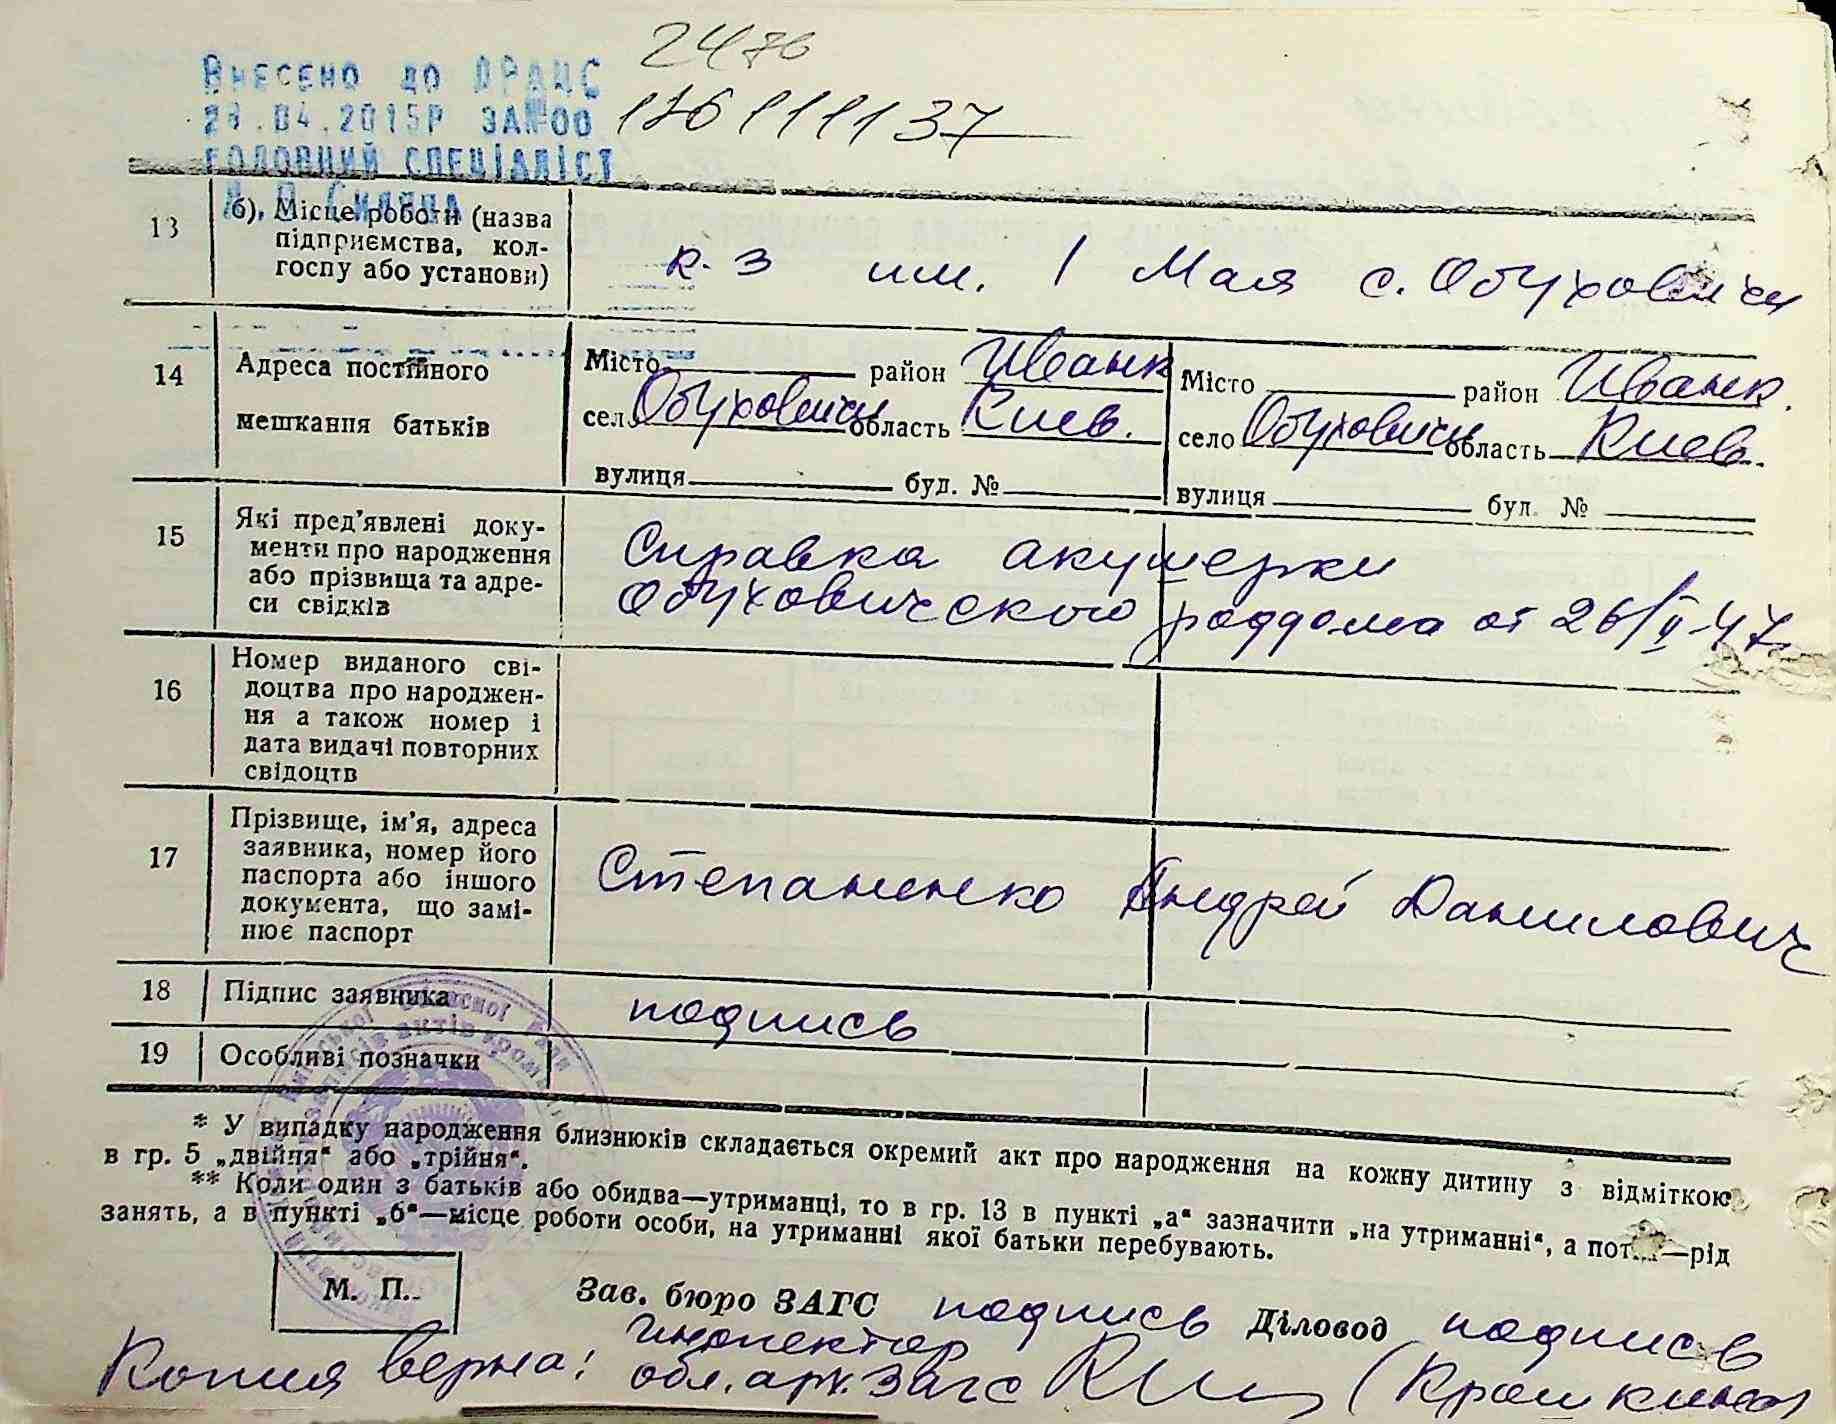 2476
ВНЕСЕНО ДО ДРАЦС
28.04.2015Р ЗА№00 176 111137
ГОЛОВНИЙ СПЕЦІАЛІСТ
13 б). Місце роботи (назва
підприємства, кол-
госпу або установи)
к-з им. 1 Мая с. Обуховичи
14 Адреса постійного
мешкання батьків
Місто район Иванк
село Обуховичи область Киев.
вулиця буд. №
Місто район Иванк.
село Обуховичи область Киев.
вулиця буд. №
15 Які пред'явлені доку-
менти про народження
або прізвища та адре-
си свідків
Справка акушерки
Обуховичского роддома от 26/II-47
16 Номер виданого сві-
доцтва про народжен-
ня а також номер і
дата видачі повторних
свідоцтв
17 Прізвище, ім'я, адреса
заявника, номер його
паспорта або іншого
документа, що замі-
нює паспорт
Степаненко Андрей Данилович
18 Підпис заявника подпись
19 Особливі позначки
* У випадку народження близнюків складається окремий акт про народження на кожну дитину з відміткою
в гр. 5 „двійня“ або „трійня“.
** Коли один з батьків або обидва—утриманці, то в гр. 13 в пункті „а“ зазначити „на утриманні“, а потім—рід
занять, а в пункті „б“—місце роботи особи, на утриманні якої батьки перебувають.
М. П. Зав. бюро ЗАГС подпись Діловод подпись
Копия верна: инспектор
обл. арх. Загс (Крашкина)